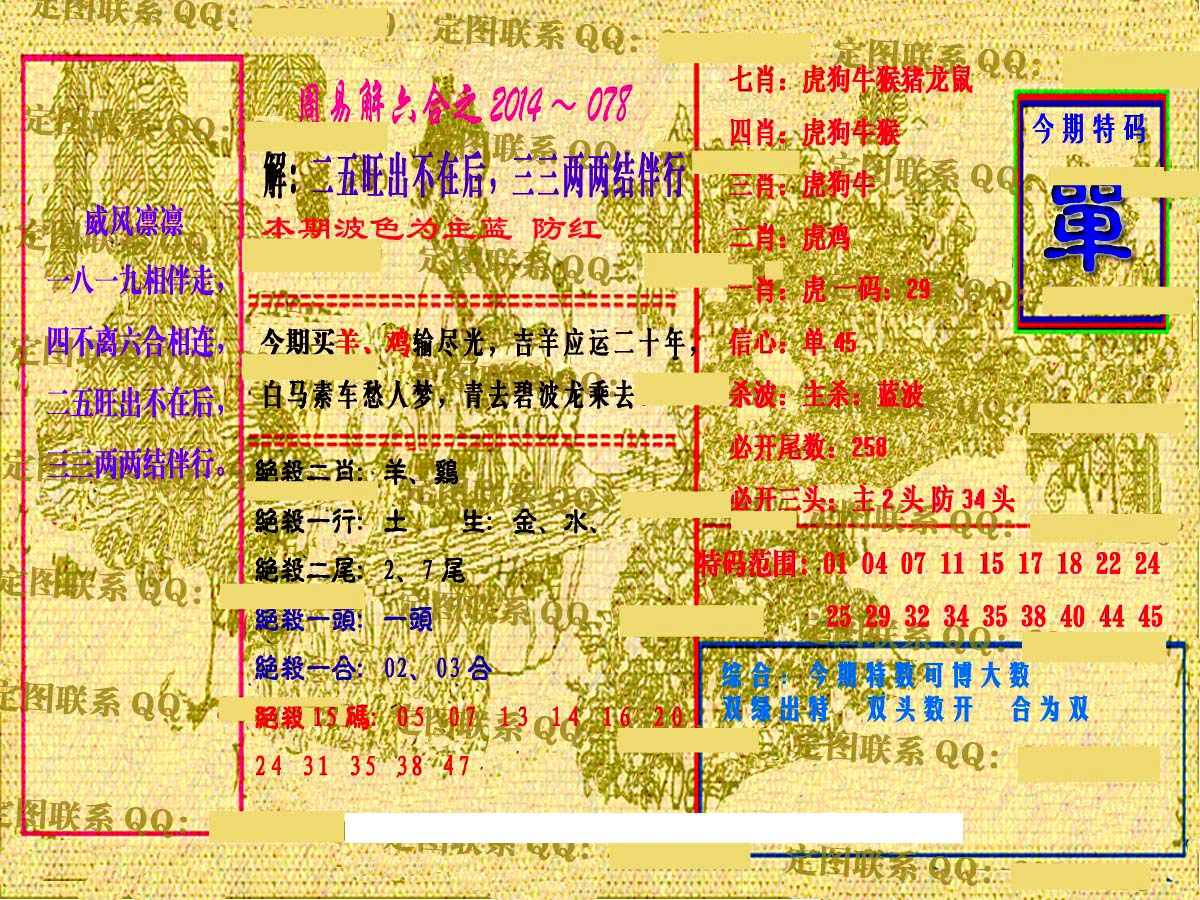 威风凛凛
一八一九相伴走，
四不离六合相连，
二五旺出不在后，
三三两两结伴行。
周易解六合之 2014～078
解：二五旺出不在后，三三两两结伴行
本期波色为主蓝 防红
今期买羊、鸡输尽光，吉羊应运二十年，
白马素车愁人梦，青去碧波龙乘去
絕殺二肖：羊、鷄
絕殺一行：土 生：金、水、
絕殺二尾：2、7 尾
絕殺一頭：一頭
絕殺一合：02、03 合
絕殺 15 碼：05 07 13 14 16 20
24 31 35 38 47
七肖：虎狗牛猴猪龙鼠
四肖：虎狗牛猴
三肖：虎狗牛
二肖：虎鸡
一肖：虎 一码：29
信心：单 45
杀波：主杀：蓝波
必开尾数：258
必开三头：主 2 头 防 34 头
今期特码
單
特码范围：01 04 07 11 15 17 18 22 24
25 29 32 34 35 38 40 44 45
综合：今期特数可博大数
双绿出特 双头数开 合为双
定图联系 QQ：
定图联系 QQ：
定图联系 QQ：
定图联系 QQ：
定图联系 QQ：
定图联系 QQ：
定图联系 QQ：
定图联系 QQ：
定图联系 QQ：
定图联系 QQ：
定图联系 QQ：
定图联系 QQ：